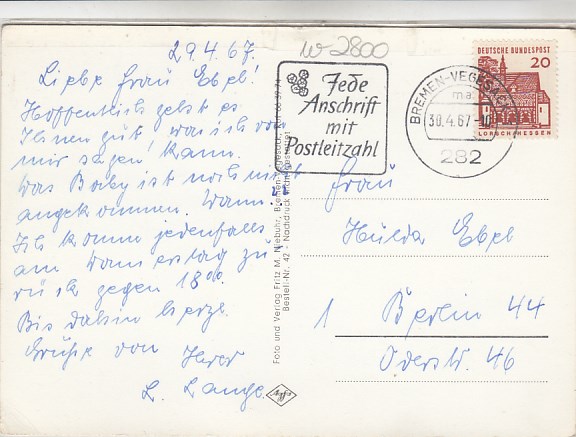 29.4.67.
Liebe Frau Ebel!
Hoffentlich geht es
Ihnen gut, was ich von
mir sagen kann.
Das Baby ist noch nicht
angekommen. Wann?
Ich komme jedenfalls
am Donnerstag zu
rück gegen 18⁰⁰.
Bis dahin herzl.
Grüße von Ihrer
L. Lange.
W-2800
Jede
Anschrift
mit
Postleitzahl
BREMEN-VEGESACK
ma
30.4.67-10
282
DEUTSCHE BUNDESPOST
20
LORSCH/HESSEN
Foto und Verlag Fritz M. Niebuhr, Bremen-Vegesack, Ruf 66 59 74
Bestell-Nr. 42 - Nachdruck nicht gestattet
Agfa
Frau
Hulda Ebel
1 Berlin 44
Oderstr. 46